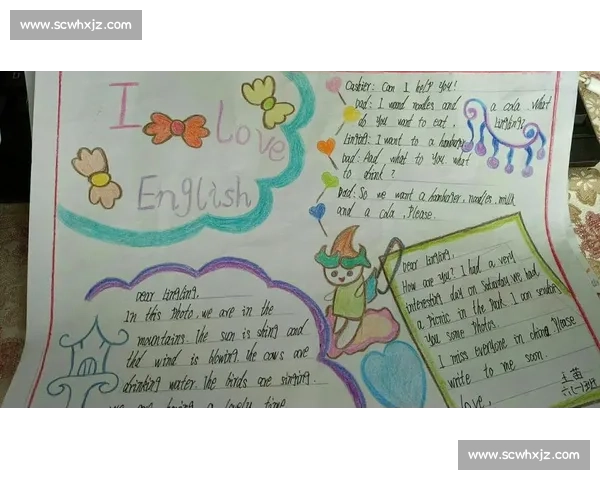 www.scwhxjz.com
I Love
English
Cashier: Can I help you!
Dad: I wand noodles and a cola. What
do you want to eat, Lingling?
Lingling: I want to a hamburger
Dad: And what to you what
to drink?
Dad: So we want a hamburger, noodles, milk
and a cola, Please.
Dear Lingling,
In this photo, we are in the
mountains. The sun is shing and
the wind is blowing. The cows are
drinking water. The birds are singing.
we are having a lovely time
Dear Lingling,
How are you? I had a very
interesting day on Saturday we had
a picnic in the Park. I am sending
you some Photos.
I miss everyone in china. Please
write to me soon.
love,
王苗
六(一)班
www.scwhxjz.com